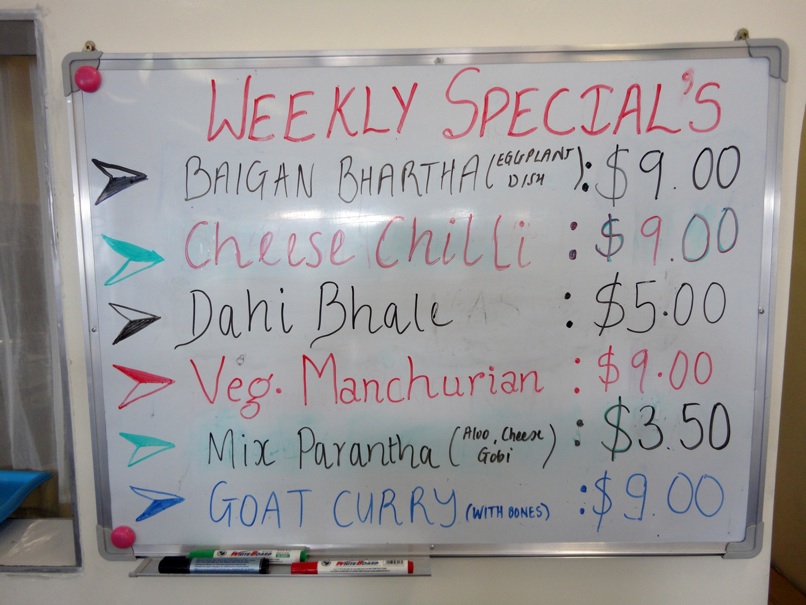 WEEKLY SPECIAL'S
BAIGAN BHARTHA (EGGPLANT DISH) : $9.00
Cheese Chilli : $9.00
Dahi Bhale : $5.00
Veg. Manchurian : $9.00
Mix Parantha (Aloo, Cheese Gobi) : $3.50
GOAT CURRY (WITH BONES) : $9.00